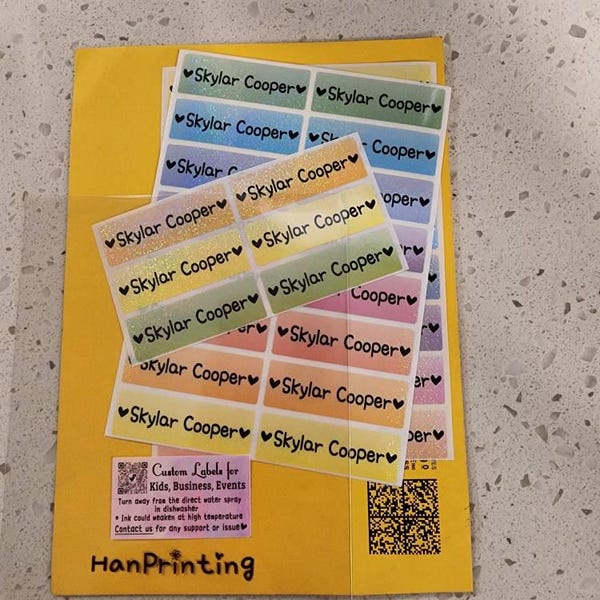 ♥Skylar Cooper♥ ♥Skylar Cooper♥
♥Skylar Cooper♥ ♥Skylar Cooper♥
♥Skylar
♥Skylar Cooper♥ ♥Skylar Cooper♥
♥Skylar Cooper♥ ♥Skylar Cooper♥
♥Skylar Cooper♥ ♥Skylar Cooper♥
♥Skylar Cooper♥
Cooper♥ ♥Skylar Cooper♥
♥Skylar Cooper♥ ♥Skylar Cooper♥
Custom Labels for
Kids, Business, Events
Turn away from the direct water spray
in dishwasher
* Ink could weaken at high temperature
Contact us for any support or issue♥
HanPrinting